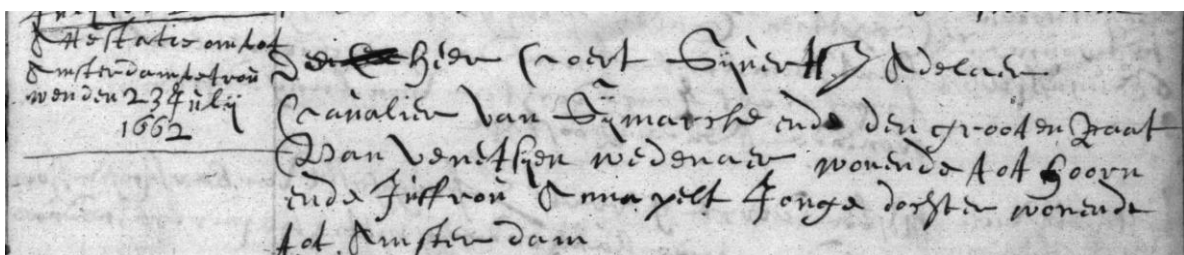 Attestatie om tot
Amsterdam te trou
wen den 23 Julij
1662
De Heer Coert Sijvertsz Adelaer
Cavalier van St Marcke ende den grooten Raat
van Venetijen wedenaer wonende tot Hoorn
ende Juffrou Anna pelt Jonge dochter wonende
tot Amsterdam